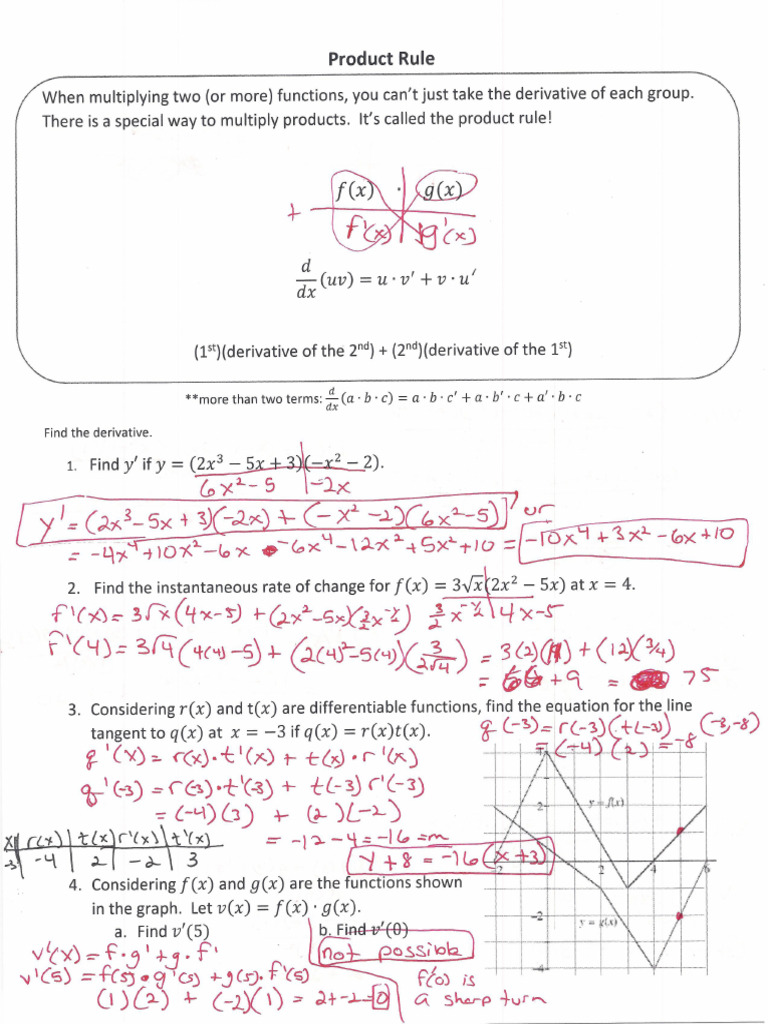 Product Rule
When multiplying two (or more) functions, you can't just take the derivative of each group.
There is a special way to multiply products. It's called the product rule!
f(x) · g(x)
+ f'(x) | g'(x)
d/dx (uv) = u · v' + v · u'
(1st)(derivative of the 2nd) + (2nd)(derivative of the 1st)
**more than two terms: d/dx (a · b · c) = a · b · c' + a · b' · c + a' · b · c
Find the derivative.
1. Find y' if y = (2x³ − 5x + 3)(−x² − 2).
6x²−5 | −2x
y' = (2x³−5x+3)(−2x) + (−x²−2)(6x²−5) or
= −4x⁴+10x²−6x −6x⁴−12x²+5x²+10 = −10x⁴+3x²−6x+10
2. Find the instantaneous rate of change for f(x) = 3√x(2x² − 5x) at x = 4.
f'(x) = 3√x(4x−5) + (2x²−5x)(3/2 x^-½) 3/2 x^-½ | 4x−5
f'(4) = 3√4(4(4)−5) + (2(4)²−5(4))(3/2√4) = 3(2)(11) + (12)(3/4)
= 66 + 9 = 75
3. Considering r(x) and t(x) are differentiable functions, find the equation for the line
tangent to q(x) at x = −3 if q(x) = r(x)t(x).
q(−3) = r(−3)(t(−3) (−3,−8)
= (−4)(2) = −8
q'(x) = r(x)·t'(x) + t(x)·r'(x)
q'(−3) = r(−3)·t'(−3) + t(−3) r'(−3)
= (−4)(3) + (2)(−2)
= −12 −4 = −16 = m
x | r(x) | t(x) | r'(x) | t'(x)
−3 | −4 | 2 | −2 | 3
y + 8 = −16(x+3)
4. Considering f(x) and g(x) are the functions shown
in the graph. Let v(x) = f(x) · g(x).
a. Find v'(5) b. Find v'(0)
v'(x) = f·g' + g·f'
v'(5) = f(5)·g'(5) + g(5)·f'(5)
(1)(2) + (−2)(1) = 2+−2=0
not possible
f'(0) is
a sharp turn
2
y = f(x)
-2
2
4
6
−2
y = g(x)
-4